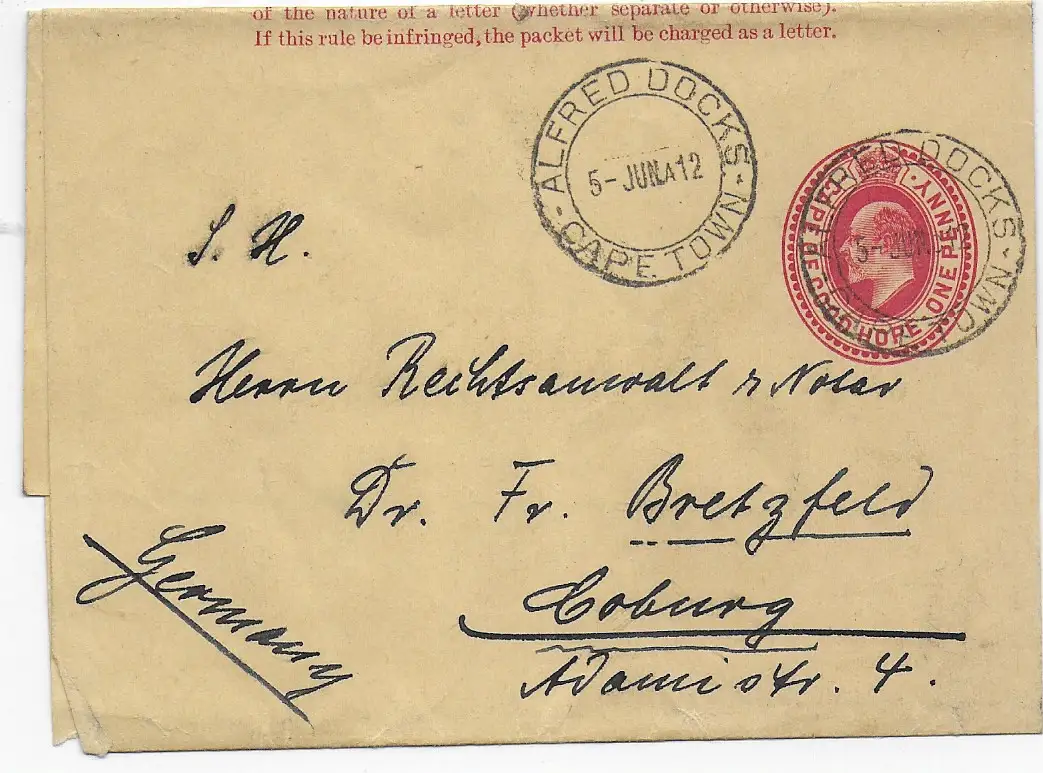 of the nature of a letter (whether separate or otherwise).
If this rule be infringed, the packet will be charged as a letter.
ALFRED DOCKS
5-JUN.A12
CAPE TOWN
CAPE OF GOOD HOPE
ONE PENNY
ALFRED DOCKS
5-JUN.
CAPE TOWN
S. H.
Herrn Rechtsanwalt & Notar
Dr. Fr. Bretzfeld
Coburg
Adamistr. 4.
Germany